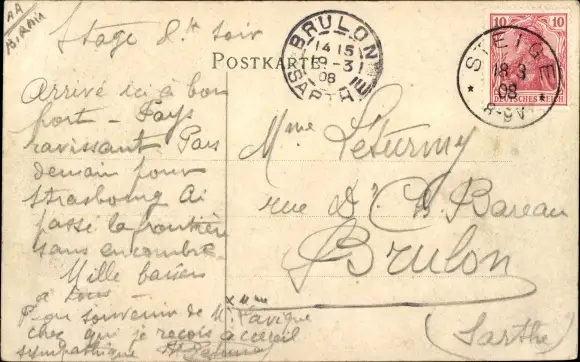 AA
B. Rhin
Steige d. soir
Arrivé ici à bon
port - Pays
ravissant Pars
demain pour
Strasbourg ai
passé la frontière
sans encombre
Mille baisers
à tous
un souvenir de M. x Mme Lavigne
chez qui je reçois accueil
sympathique
BRULON
14 15
19-3
08
SARTHE
POSTKARTE
10 10
DEUTSCHES REICH
STEIGE
18 3
08
8-9V
Mme Leturmy
rue Dr Ch. Bareau
Brulon
(Sarthe)